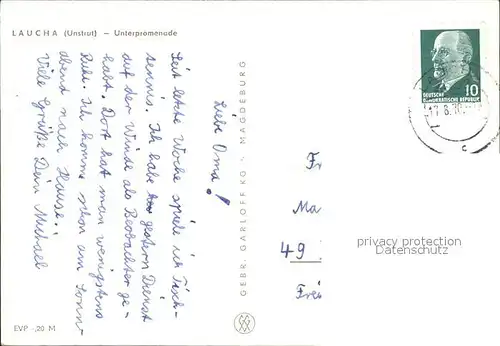 LAUCHA (Unstrut) — Unterpromenade
Liebe Oma!
Seit letzte Woche spiele ich Tisch-
tennis. Ich habe gestern Dienst
auf der Winde als Beobachter ge-
habt. Dort hat man wenigstens
Ruhe. Ich komme schon am Sonn-
abend nach Hause..
Viele Grüße Dein Michael
GEBR. GARLOFF KG, MAGDEBURG
EVP -,20 M
10
DEUTSCHE
DEMOKRATISCHE REPUBLIK
17.8.70
c
Fr
Ma
49
Frei
privacy protection
Datenschutz